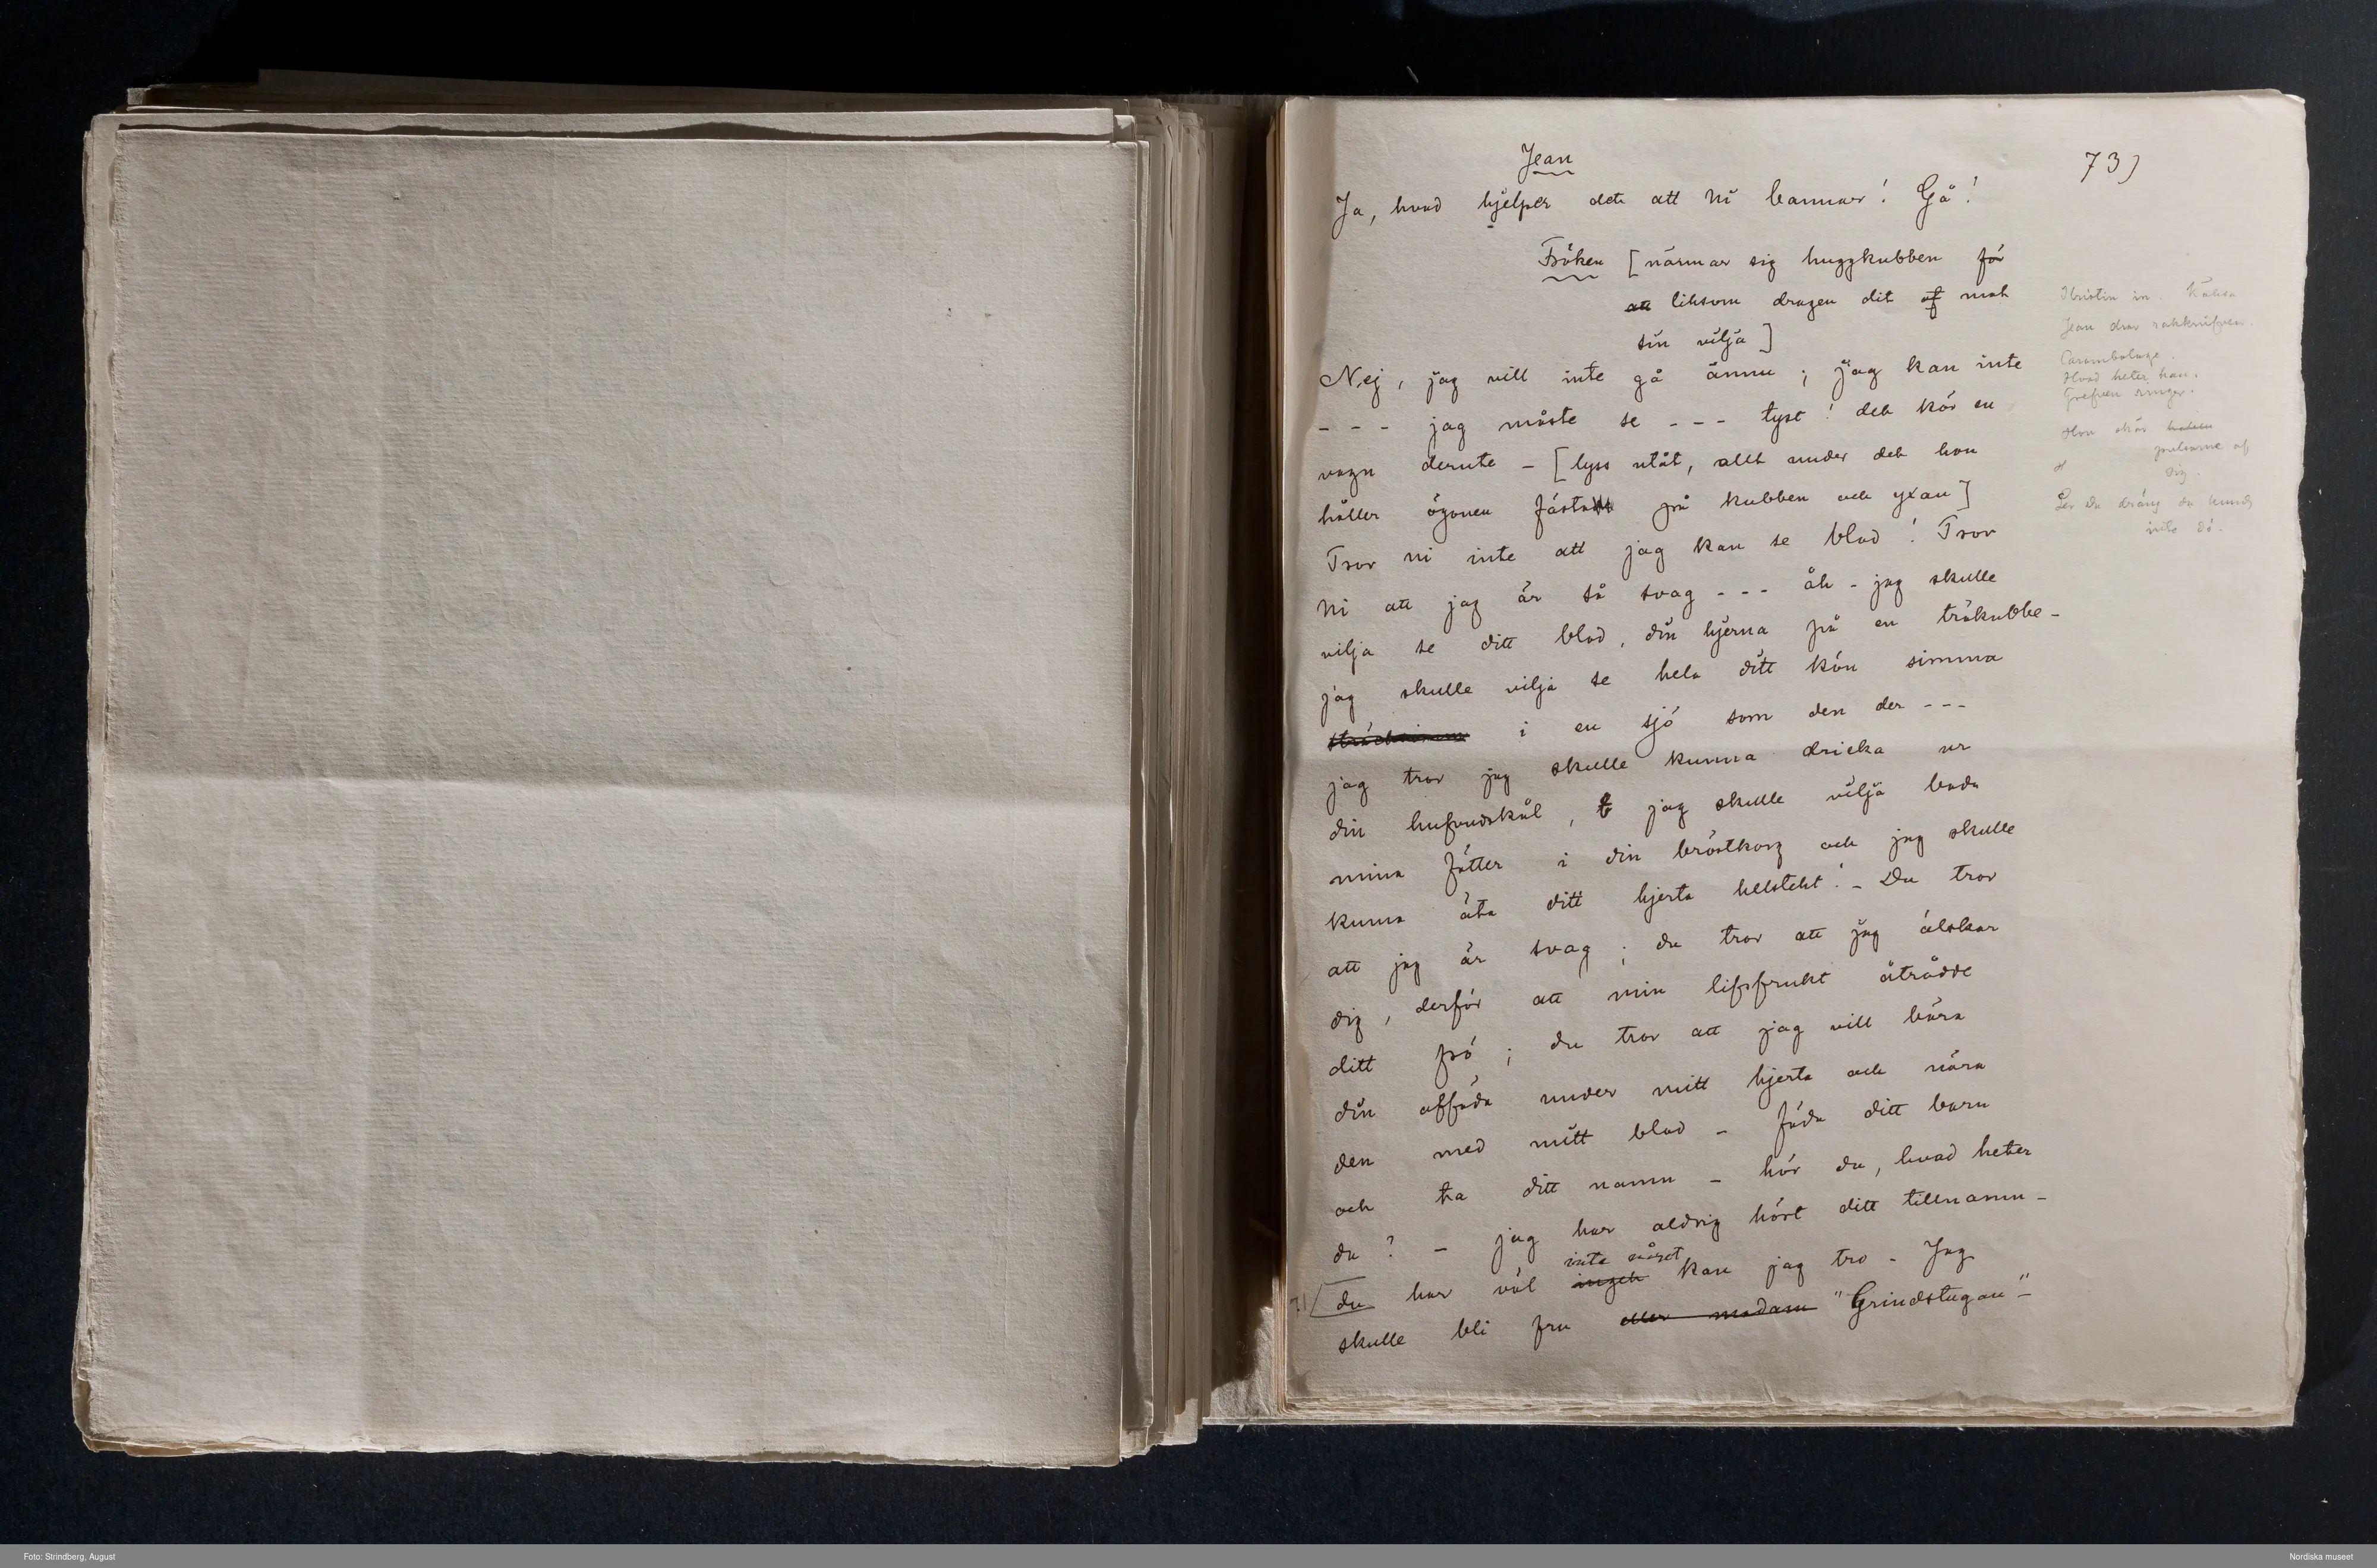 Jean
73)
Ja, hvad hjelper det att Ni bannar! Gå!
Fröken [närmar sig huggkubben för
att liksom dragen dit af mot
sin vilja]
Nej, jag vill inte gå ännu; jag kan inte
- - - jag måste se - - - tyst! det kör en
vagn derute - [lyss utåt, allt under det hon
håller ögonen fästa på kubben och yxan]
Tror ni inte att jag kan se blod! Tror
Ni att jag är så svag - - - åh - jag skulle
vilja se ditt blod, din hjerna på en träkubbe -
jag skulle vilja se hela ditt kön simma
i en sjö som den der - - -
jag tror jag skulle kunna dricka ur
din hufvudskål, jag skulle vilja bada
mina fötter i din bröstkorg och jag skulle
kunna äta ditt hjerta helstekt! - Du tror
att jag är svag; du tror att jag älskar
dig, derför att min lifsfrukt åtrådde
ditt frö; du tror att jag vill bära
din afföda under mitt hjerta och nära
den med mitt blod - föda ditt barn
och ta ditt namn - hör du, hvad heter
du? - jag har aldrig hört ditt tillnamn -
inte något
du har väl inget kan jag tro - Jag
skulle bli fru eller madam "Grindstugan" -
Kristin in.
Jean drar rakknifven.
Carambolage.
Hvad heter han.
Grefven ringer.
Hon skär halsen
pulsarne af
sig.
Ser du dräng du kunde
inte dö.
Foto: Strindberg, August
Nordiska museet